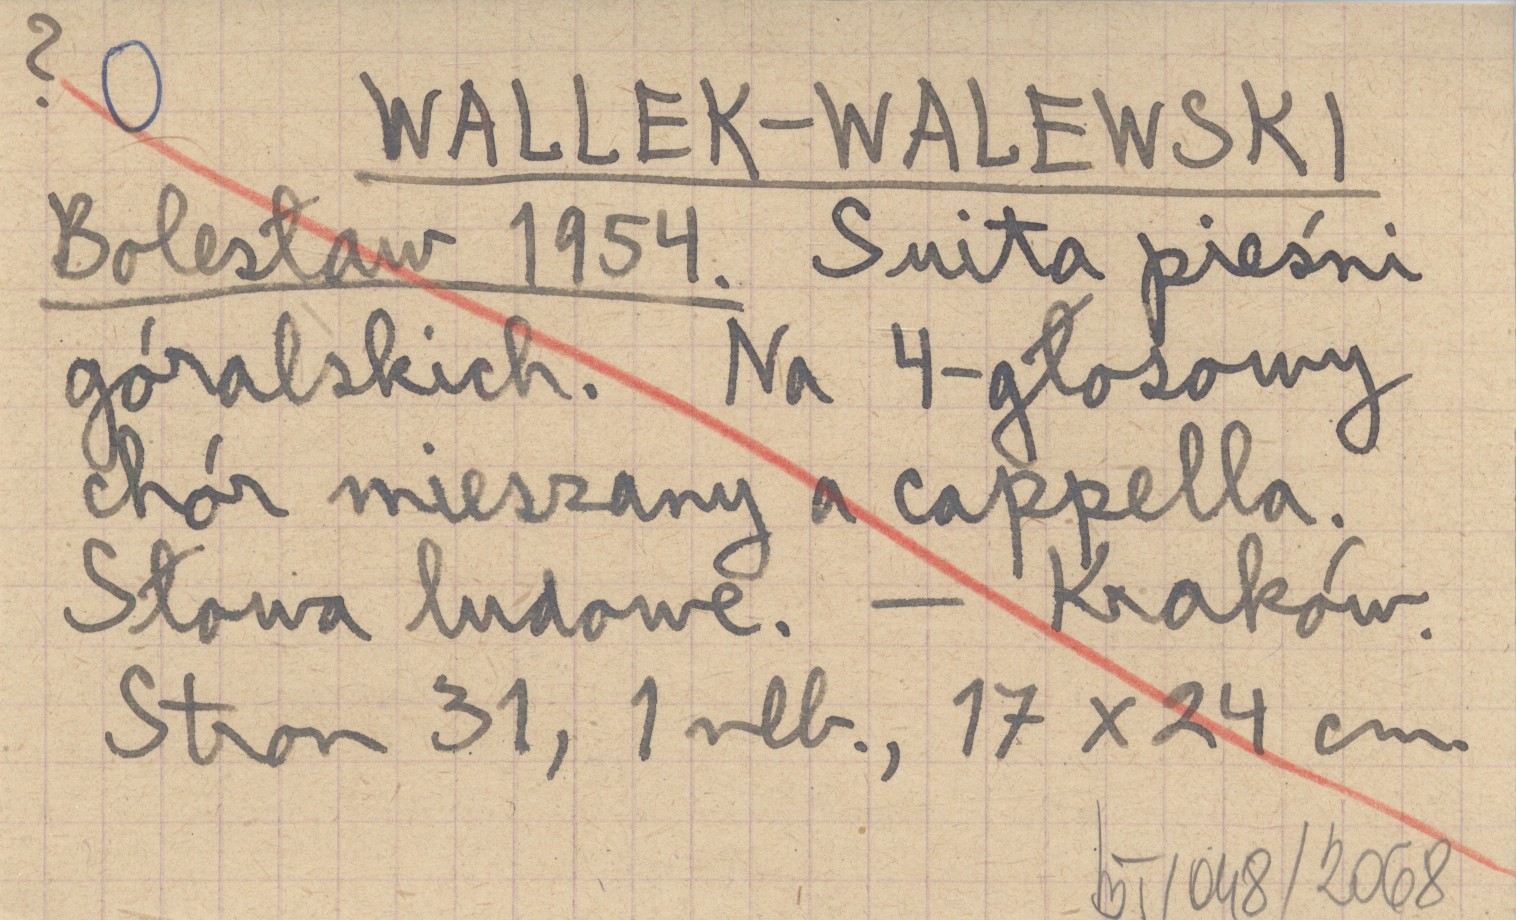 ?
O
WALLEK-WALEWSKI
Bolesław 1954. Suita pieśni
góralskich. Na 4-głosowy
chór mieszany a cappella.
Słowa ludowe. — Kraków.
Stron 31, 1 nlb., 17 x 24 cm.
/048/2068